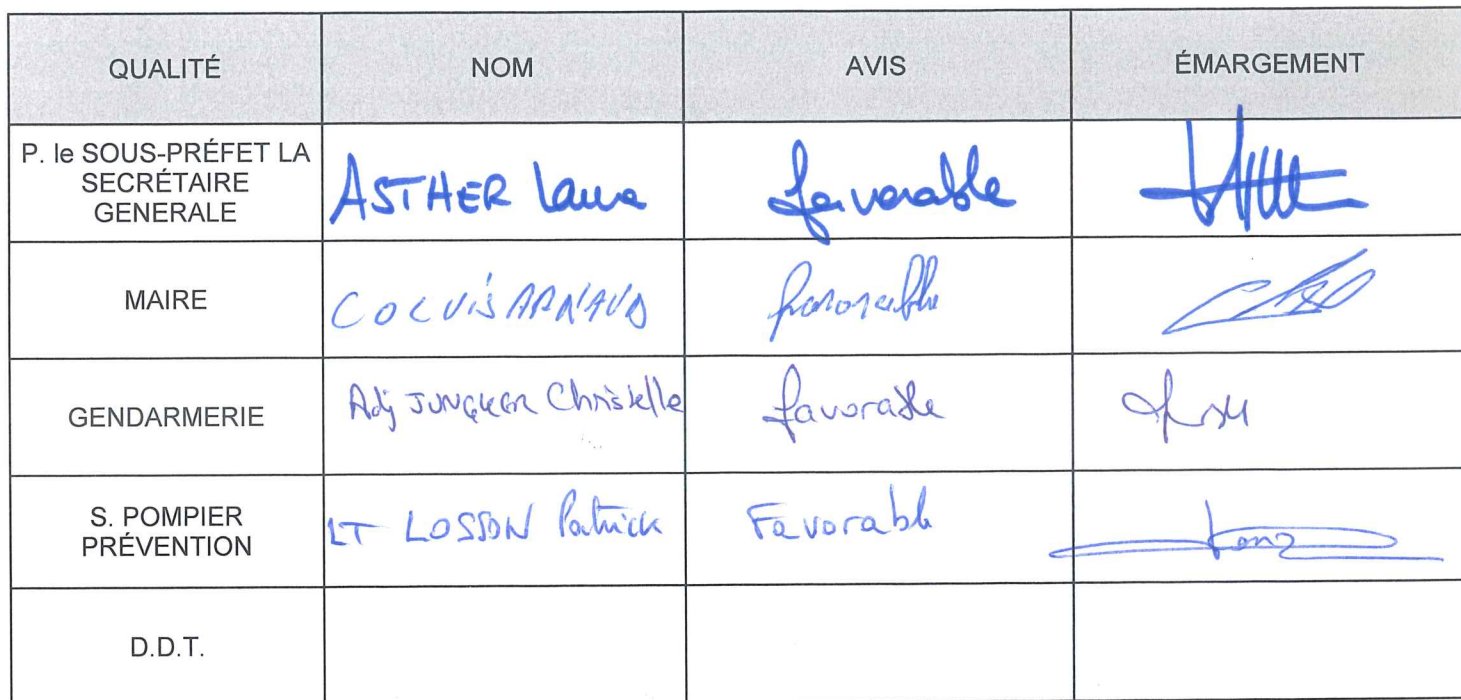 QUALITÉ NOM AVIS ÉMARGEMENT
P. le SOUS-PRÉFET LA
SECRÉTAIRE
GENERALE
ASTHER Laura favorable
MAIRE ARNAUD favorable
GENDARMERIE Adj JUNGKER Christelle favorable
S. POMPIER
PRÉVENTION
LT LOSSON Patrick Favorable
D.D.T.